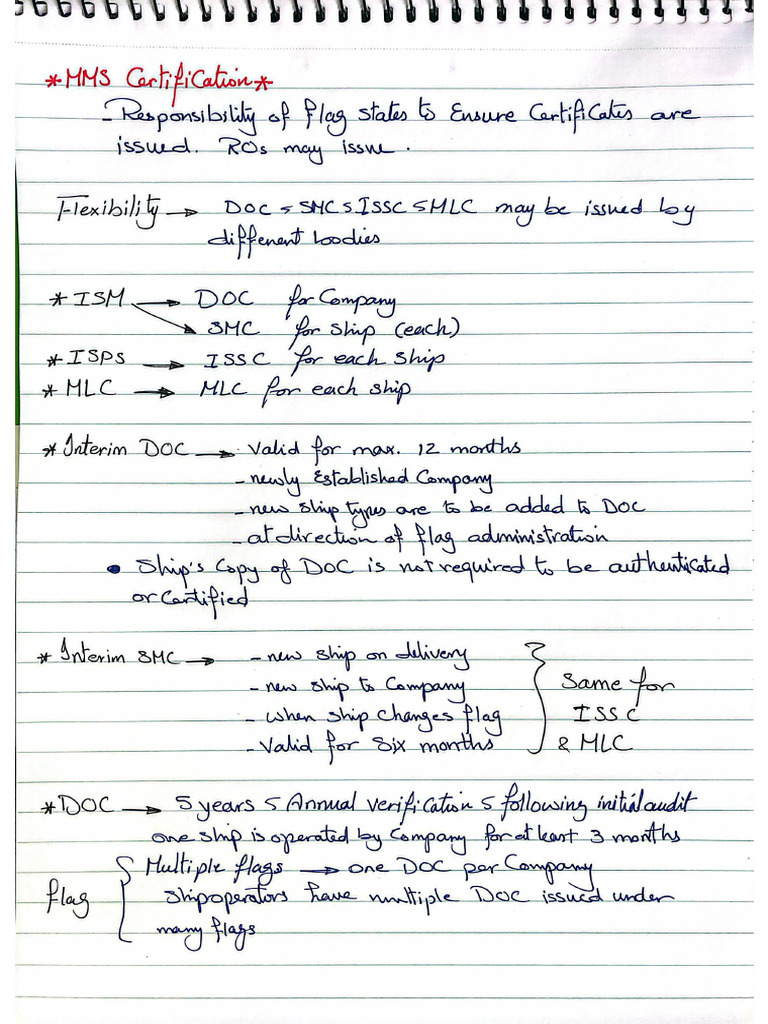 *MMS Certification*
- Responsibility of flag states to Ensure Certificates are
issued. ROs may issue.
Flexibility → DOC, SMC, ISSC, MLC may be issued by
different bodies
* ISM → DOC for Company
→ SMC for ship (each)
* ISPS → ISSC for each ship
* MLC → MLC for each ship
* Interim DOC → Valid for max. 12 months
- newly Established Company
- new ship types are to be added to DOC
- at direction of flag administration
• Ship's Copy of DOC is not required to be authenticated
or Certified
* Interim SMC → - new ship on delivery
- new ship to Company
- when ship changes flag
- Valid for Six months
Same for
ISSC
& MLC
* DOC → 5 years, Annual verification, following initial audit
one ship is operated by Company for at least 3 months
flag
Multiple flags → one DOC per Company
Shipoperators have multiple DOC issued under
many flags